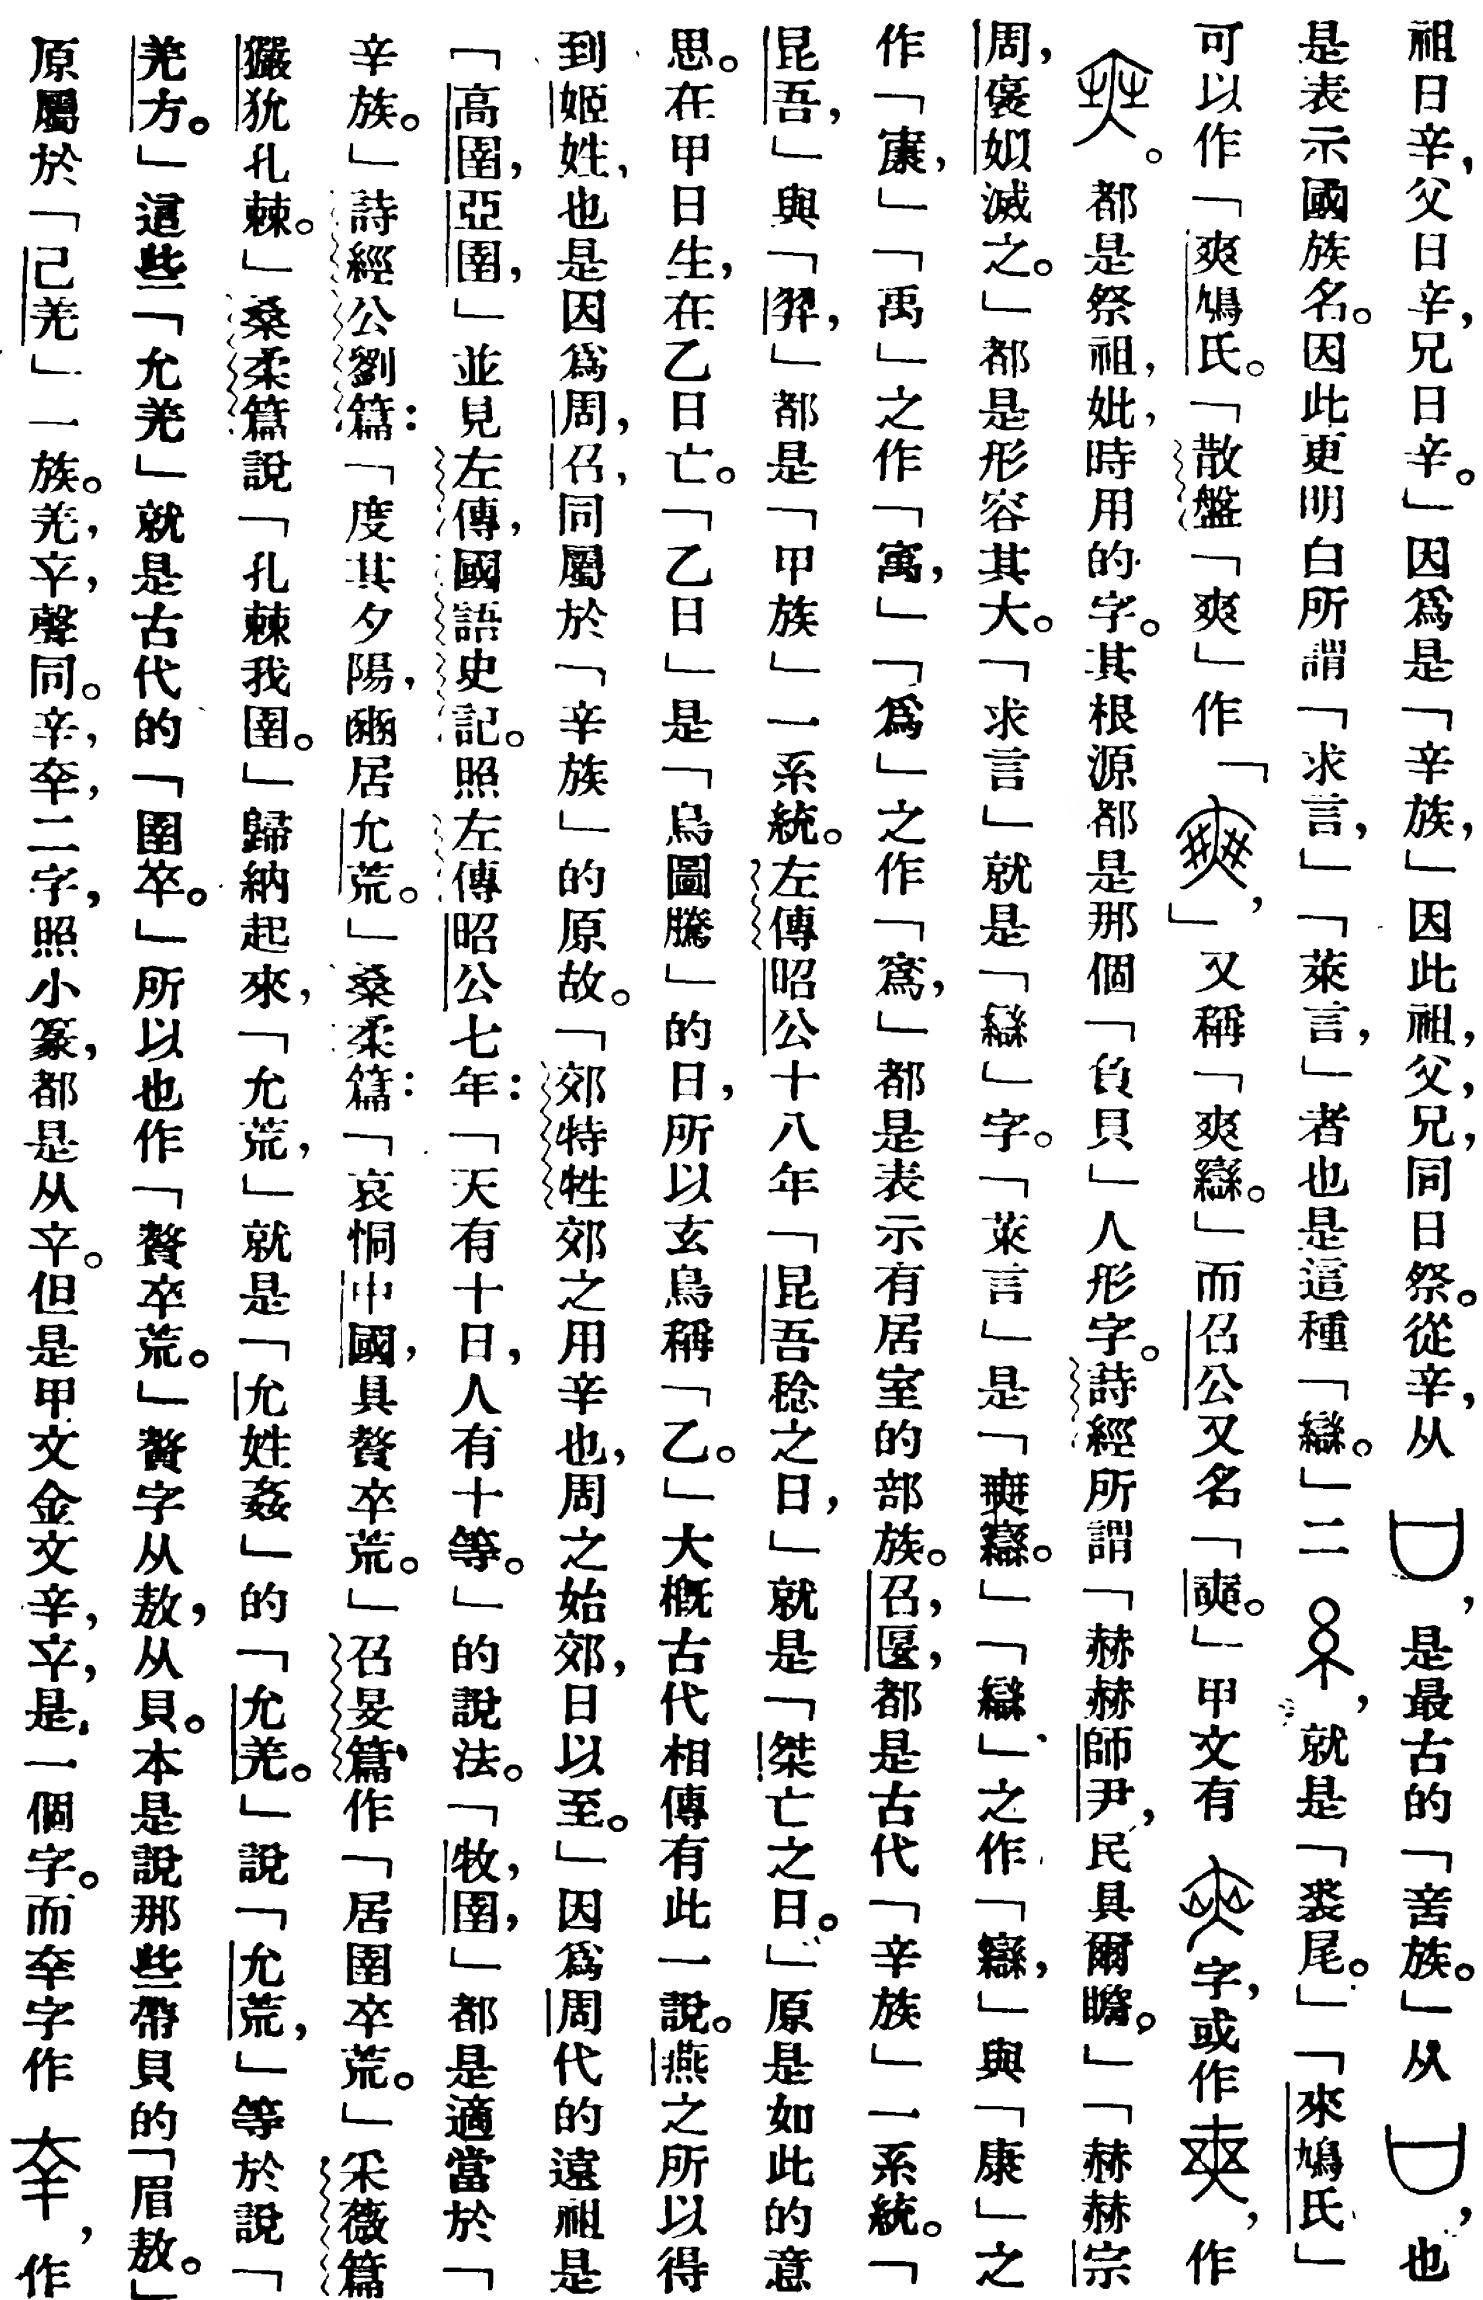 祖日辛，父日辛，兄日辛。」因爲是「辛族，」因此祖，父，兄，同日祭。從辛，从，是最古的「䇂族。」从，也
是表示國族名。因此更明白所謂「求言，」「萊言，」者也是這種「䜌。」二，就是「裘尾。」「來鳩氏」
可以作「爽鳩氏。「散盤「爽」作「，」又稱「爽䜌。」而召公又名「奭。」甲文有字，或作，作
。都是祭祖，妣，時用的字。其根源都是那個「負貝」人形字。詩經所謂「赫赫師尹，民具爾瞻。」「赫赫宗
周，褒姒滅之。」都是形容其大。「求言」就是「䜌」字。「萊言」是「爽。」「䜌」之作「，」與「康」之
作「，」「禹」之作「寓，」「爲」之作「寪，」都是表示有居室的部族。召，匽，都是古代「辛族」一系統。「
昆吾，」與「羿，」都是「甲族」一系統。左傳昭公十八年「昆吾稔之日，」就是「桀亡之日。」原是如此的意
思。在甲日生，在乙日亡。「乙日」是「鳥圖騰」的日，所以玄鳥稱「乙。」大概古代相傳有此一說。燕之所以得
到姬姓，也是因爲周，召，同屬於「辛族」的原故。「郊特牲郊之用辛也，周之始郊，日以至。」因爲周代的遠祖是
「高圉，亞圉，」並見左傳，國語史記。照左傳昭公七年：「天有十日，人有十等。」的說法。「牧，圉，」都是適當於「
辛族。」詩經公劉篇：「度其夕陽，豳居允荒。」桑柔篇：「哀恫中國，具贅卒荒。」召旻篇，作「居圉卒荒。」采薇篇
玁狁孔棘。」桑柔篇說「孔棘我圉。」歸納起來，「允荒，」就是「允姓姦」的「允羌。」說「允荒，」等於說「
羌方。」這些「允羌」就是古代的「圉卒。」所以也作「贅卒荒。」贅字从敖，从貝。本是說那些帶貝的「眉敖。」
原屬於「己羌」一族。羌，䇂，聲同。辛，㚔，二字，照小篆，都是从䇂。但是甲文金文辛，䇂，是一個字。而㚔字作，作